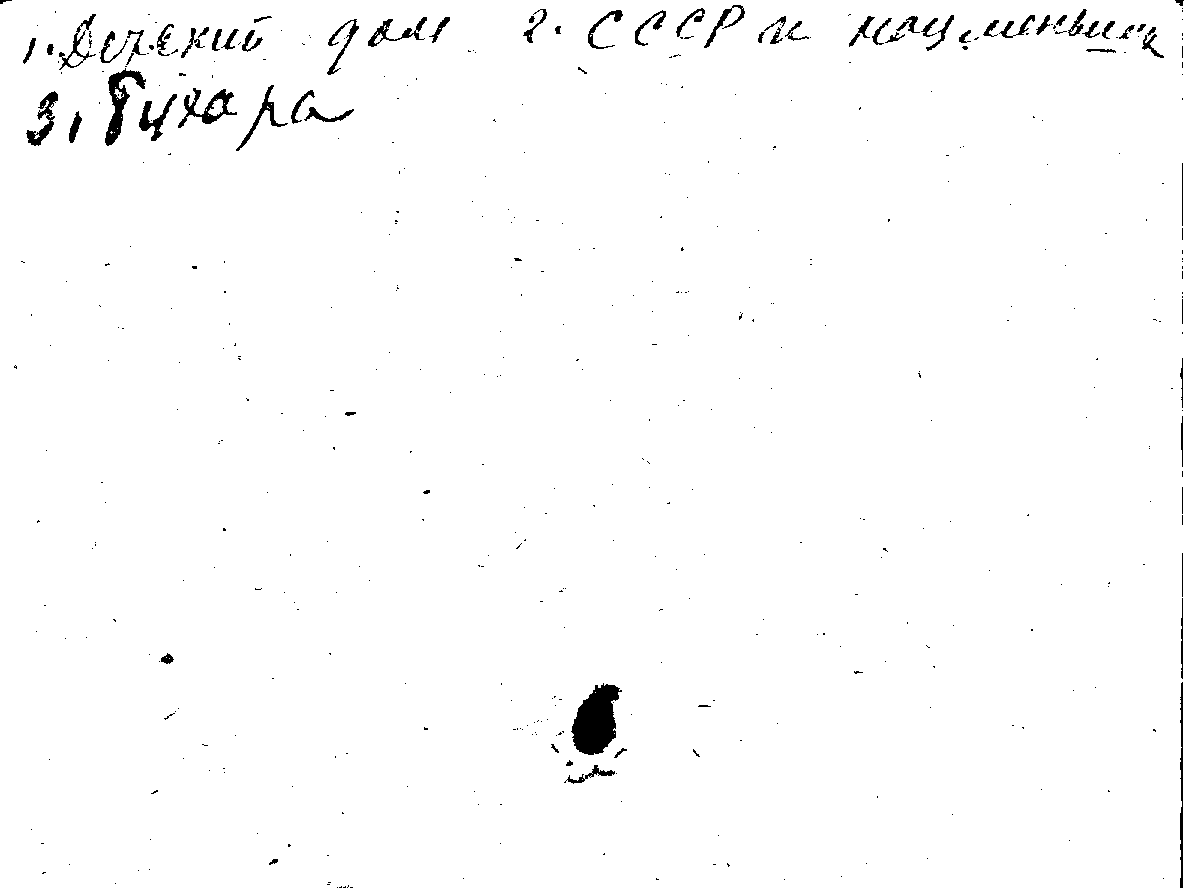 1. Детский дом 2. СССР и нац.меньшин
3. Бухара